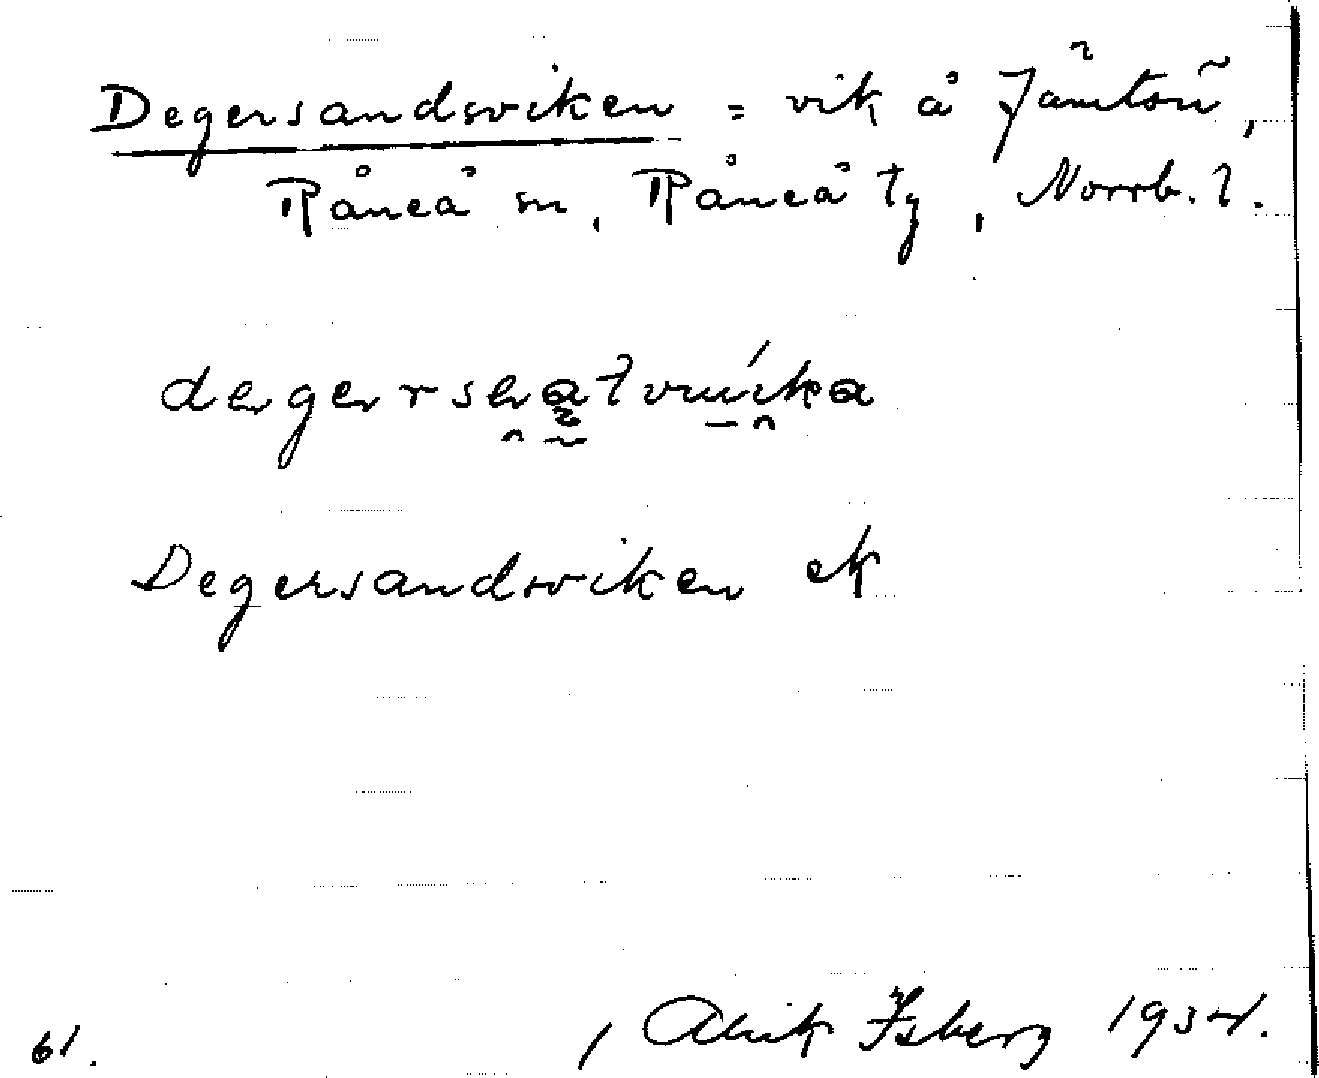 Degersandsviken = vik å Jämtön,
Råneå sn, Råneå tg, Norrb. l.
Degersandsviken ek
61. Alrik Isberg 1934.